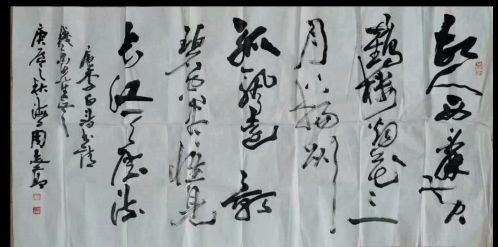 故人西辭黄
鶴樓烟花三
月下揚州
孤帆遠影
碧空盡惟見
长江天際流
唐李白詩
先生正之
庚 之秋 周